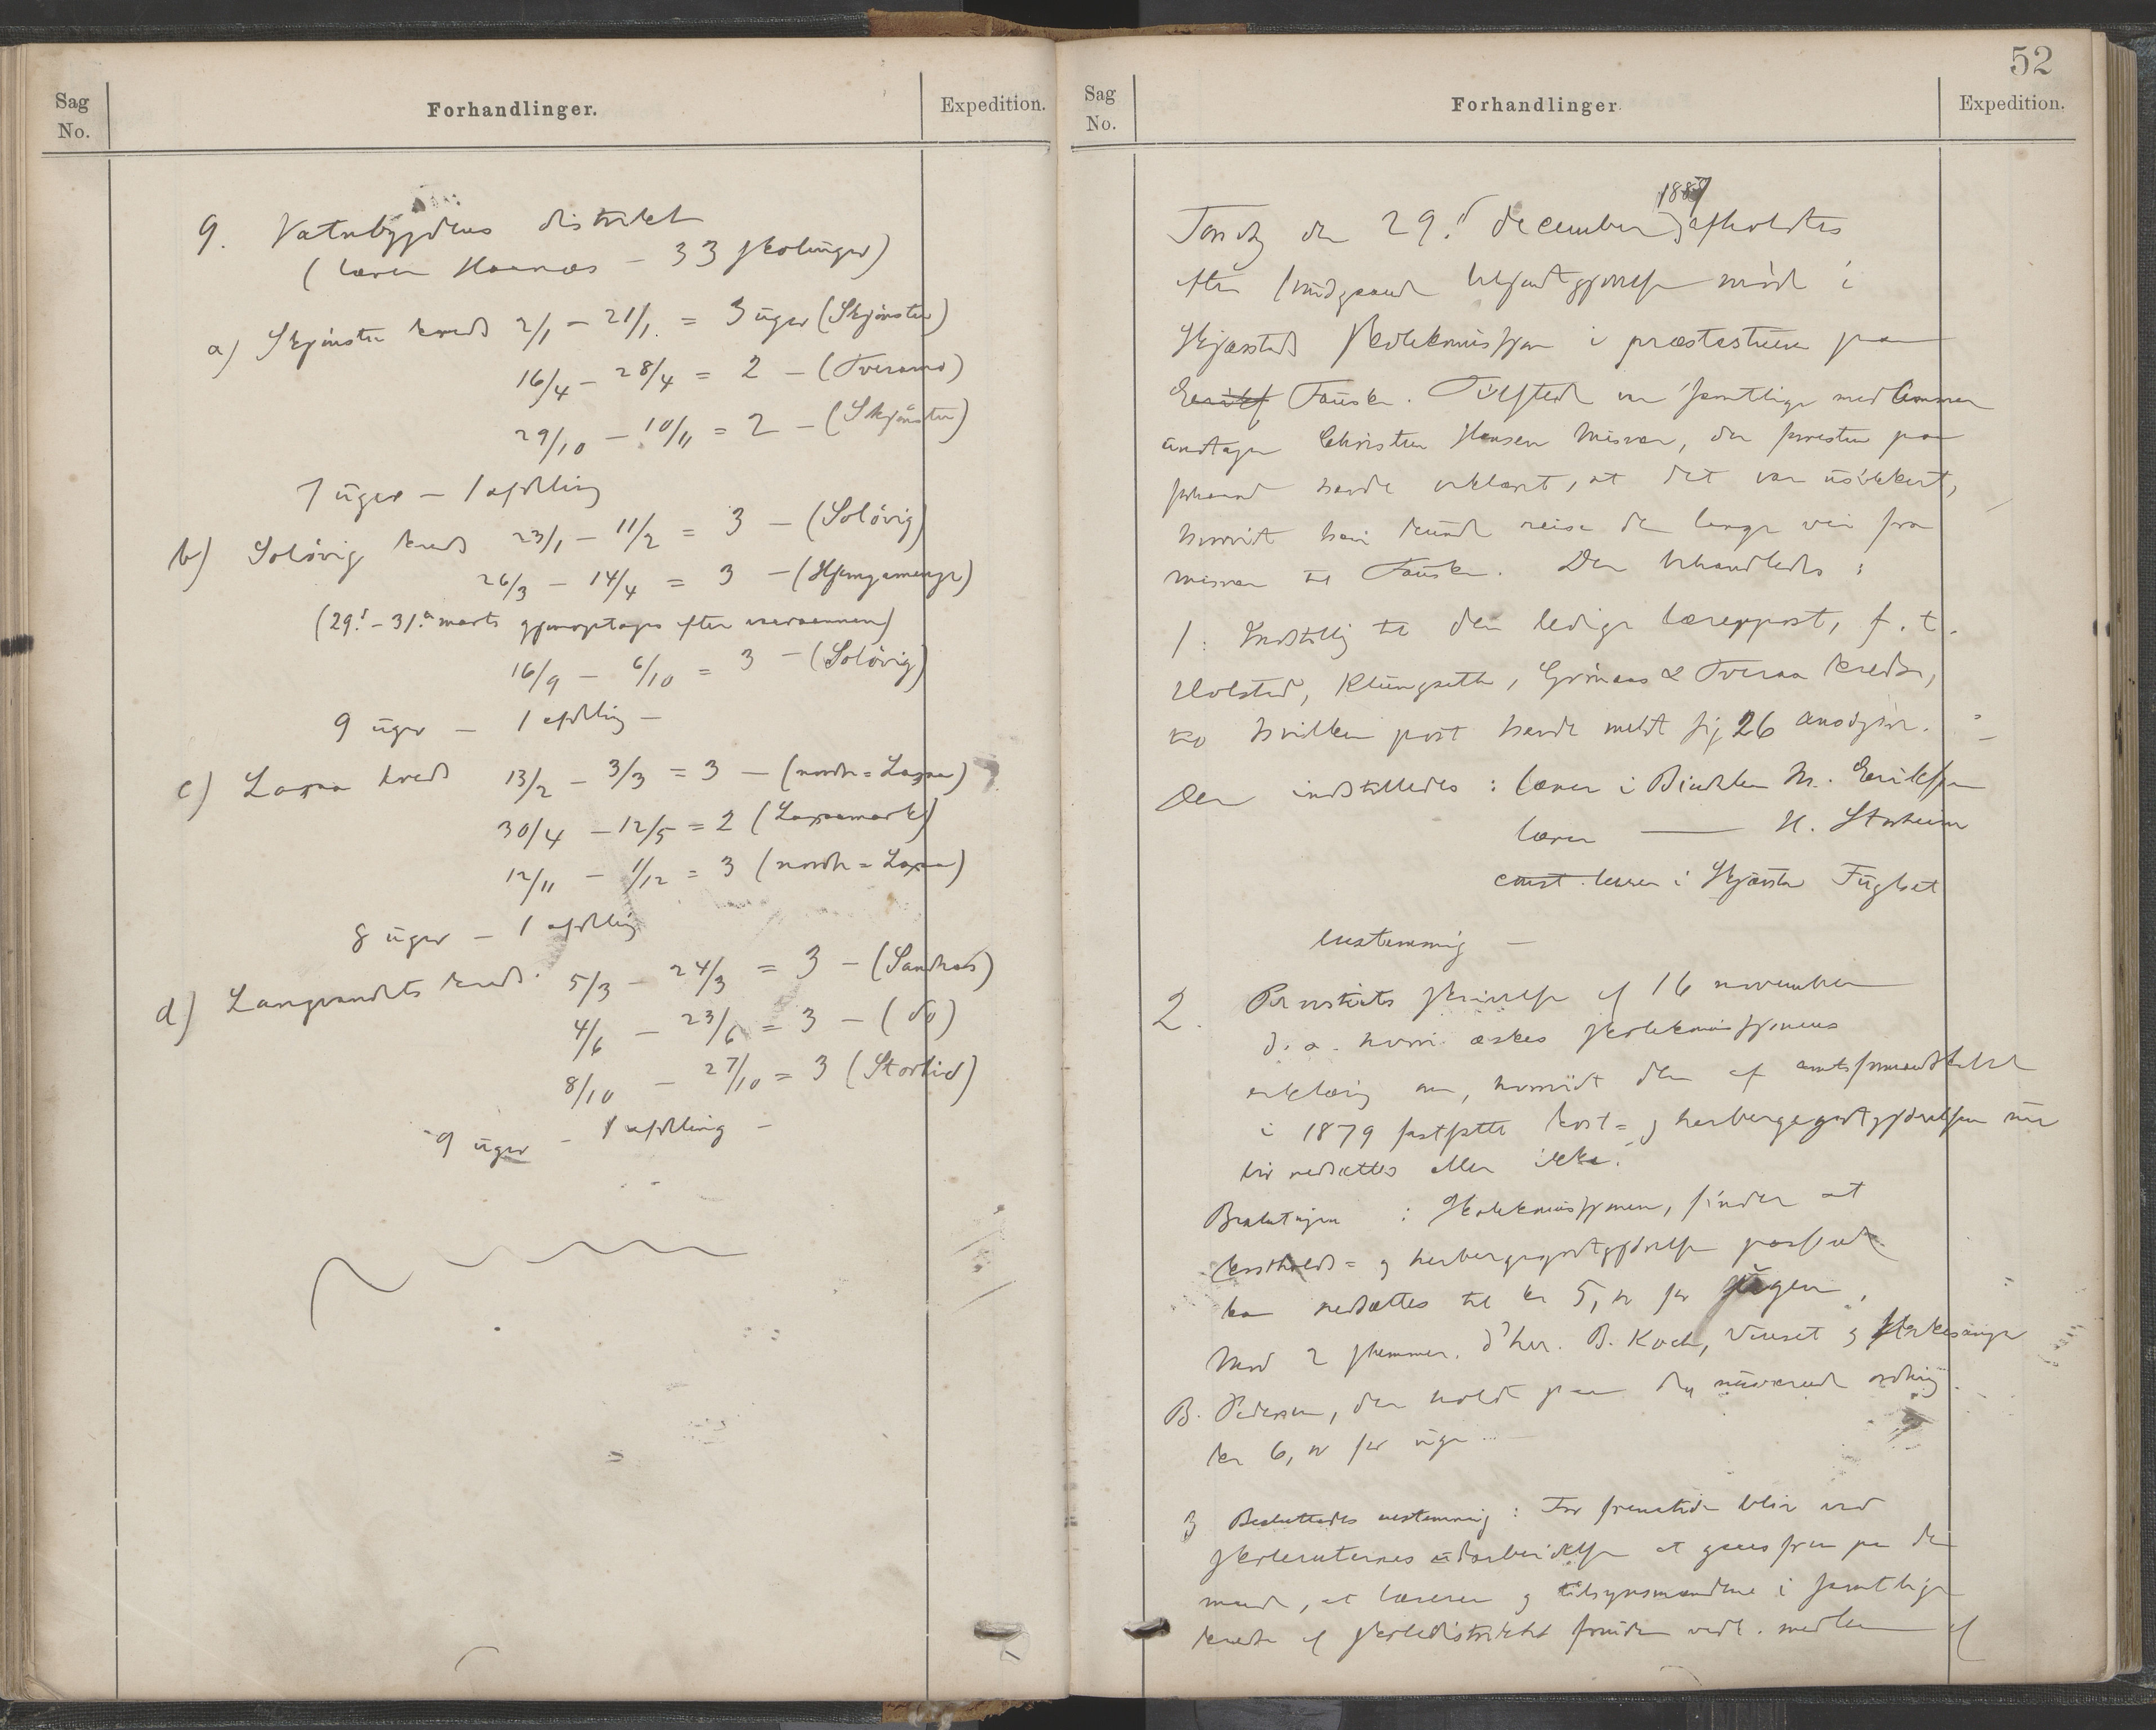 Sag
No.
Forhandlinger.
Expedition.
9. Vatnbygdens distrikt
(lærer Haarnæs - 33 skoleuger)
a) Skjönstu kreds 2/1 - 21/1. = 3 uger (Skjönstu)
16/4 - 28/4 = 2 - (Tveraamo)
29/10 - 10/11 = 2 - (Skjönstu)
7 uger - 1 afdeling
b) Solövig kreds 23/1 - 11/2 = 3 - (Solövig)
26/3 - 14/4 = 3 - (Hjemgam)
(29. - 31. marts gjenoptages efter vaaraannen)
16/9 - 6/10 = 3 - (Solövig)
9 uger - 1 afdeling -
c) Laxaa kreds 13/2 - 3/3 = 3 - (nordr = Laxaa)
30/4 - 12/5 = 2 (Laxaamark)
12/11 - 1/12 = 3 (nordr = Laxaa)
8 uger - 1 afdeling
d) Langvandets kreds. 5/3 - 24/3 = 3 - (Sandnæs)
4/6 - 23/6 = 3 - (do)
8/10 - 27/10 = 3 (Storlid)
9 uger - 1 afdeling -
52
Sag
No.
Forhandlinger.
Expedition.
1887
Torsdag den 29. december afholdtes
efter bekjendtgjørelse möde i
Skjærstads skolekommission i præstestuen paa
Fauske. Tilstede var samtlige medlemmer
undtagen Christen Hansen Misvær, der præsten paa
forhaand havde erklæret, at det var usikkert,
hvorvidt han kunde reise den lange vei fra
Misvær til Fauske. Der behandledes:
1. Indstilling til den ledige lærerpost, f. t.
Holstad, Klungseth, Grönaas & Tveraa kredse,
til hvilken post havde meldt sig 26 ansögere.
Der indstilledes: lærer i Bindalen M. Eriksen
lærer — H. Storheim
const. lærer i Skjærstad Fuglset
enstemmig -
2. Provstiets skrivelse af 16 november
d. a. hvori æskes skolekommissionens
erklæring om, hvorvidt den af amtsformandskabet
i 1879 fastsatte kost= og herbergegodtgjørelsen nu
bør nedsættes eller ikke.
Beslutningen: Skolekommissionen, finder at
kostholds= og herbergegodtgjørelse
kan nedsættes til kr 5,00 pr ugen,
Mod 2 stemmer. d'hrr. B. Koch, Venset og kirkesanger
B. Pedersen, der holdt paa den nuværende ordning
kr 6,00 pr uge
3 Besluttedes enstemmig: For fremtiden blir ved
skoleruternes udarbeidelse at gaaes frem paa den
maade, at læreren og tilsynsmændene i samtlige
kredse af skoledistriktet foruden vedk. medlem af